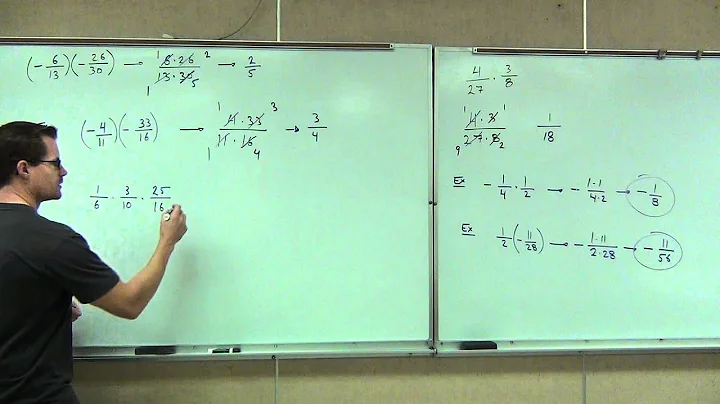 (-6/13)(-26/30) → 1 6·26 2 / 1 13·30 5 → 2/5
(-4/11)(-33/16) → 1 4·33 3 / 1 11·16 4 → 3/4
1/6 · 3/10 · 25/16
4/27 · 3/8
1 4·3 1 / 9 27·8 2 1/18
Ex -1/4 · 1/2 → -1·1/4·2 → -1/8
Ex 1/2(-11/28) → -1·11/2·28 → -11/56